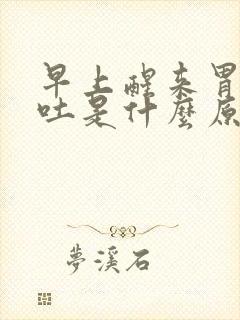 早上醒来胃
吐是什麼原
夢溪石